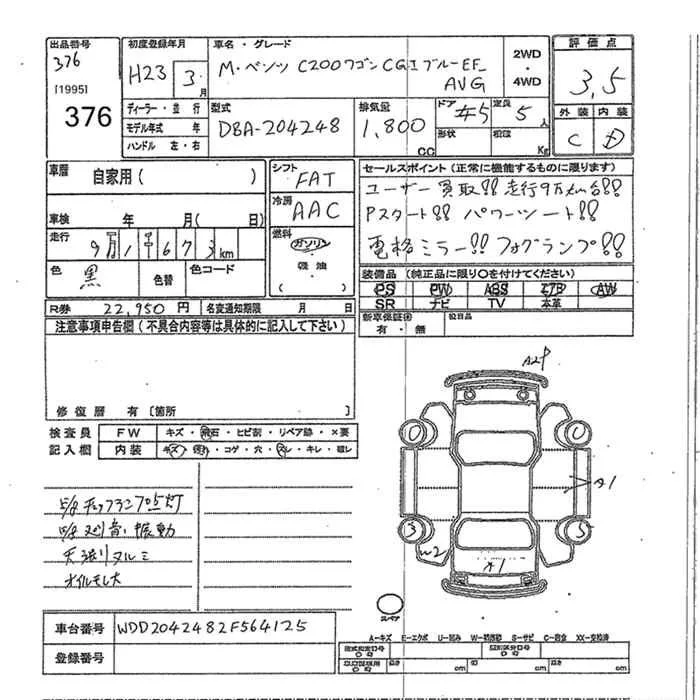 出品番号
376
[1995]
376
初度登録年月
H23 3月
車名・グレード
M・ベンツ C200ワゴン CGI ブルーEF
AVG
2WD
・
4WD
評価点
3,5
外装 内装
C D
ディーラー・並行
モデル年式 年
ハンドル 左・右
型式
DBA-204248
排気量
1,800
CC
ドア #5
形状
定員 5人
Kg
車歴 自家用( )
車検 年 月( 日)
走行 9万1千673km
色 黒 色替 色コード
シフト
FAT
冷房
AAC
燃料
ガソリン
軽油
( )
セールスポイント(正常に機能するものに限ります)
ユーザー買取!! 走行9万km台!!
Pスタート!! パワーシート!!
電格ミラー!! フォグランプ!!
装備品(純正品に限り○を付けてください)
PS PW ABS エアB AW
SR ナビ TV 本革
R券 22,950円 名変通知期限 月 日
新車保証書
有・無
注意事項申告欄(不具合内容等は具体的に記入して下さい)
修復歴 有〔箇所 〕
検査員
記入欄
FW キズ・飛石・ヒビ割・リペア跡・×要
内装 キズ・汚れ・コゲ・穴・スレ・キレ・破レ
E/g チェックランプ点灯
E/g 異音・振動
天張りヌルミ
オイルモレ大
A2P
0
0
3
5
A1
W2
A1
スペア
車台番号 WDD2042482F564125
登録番号
A-キズ E-エクボ U-凹み S-サビ C-腐食 XX-交換済
cm cm cm